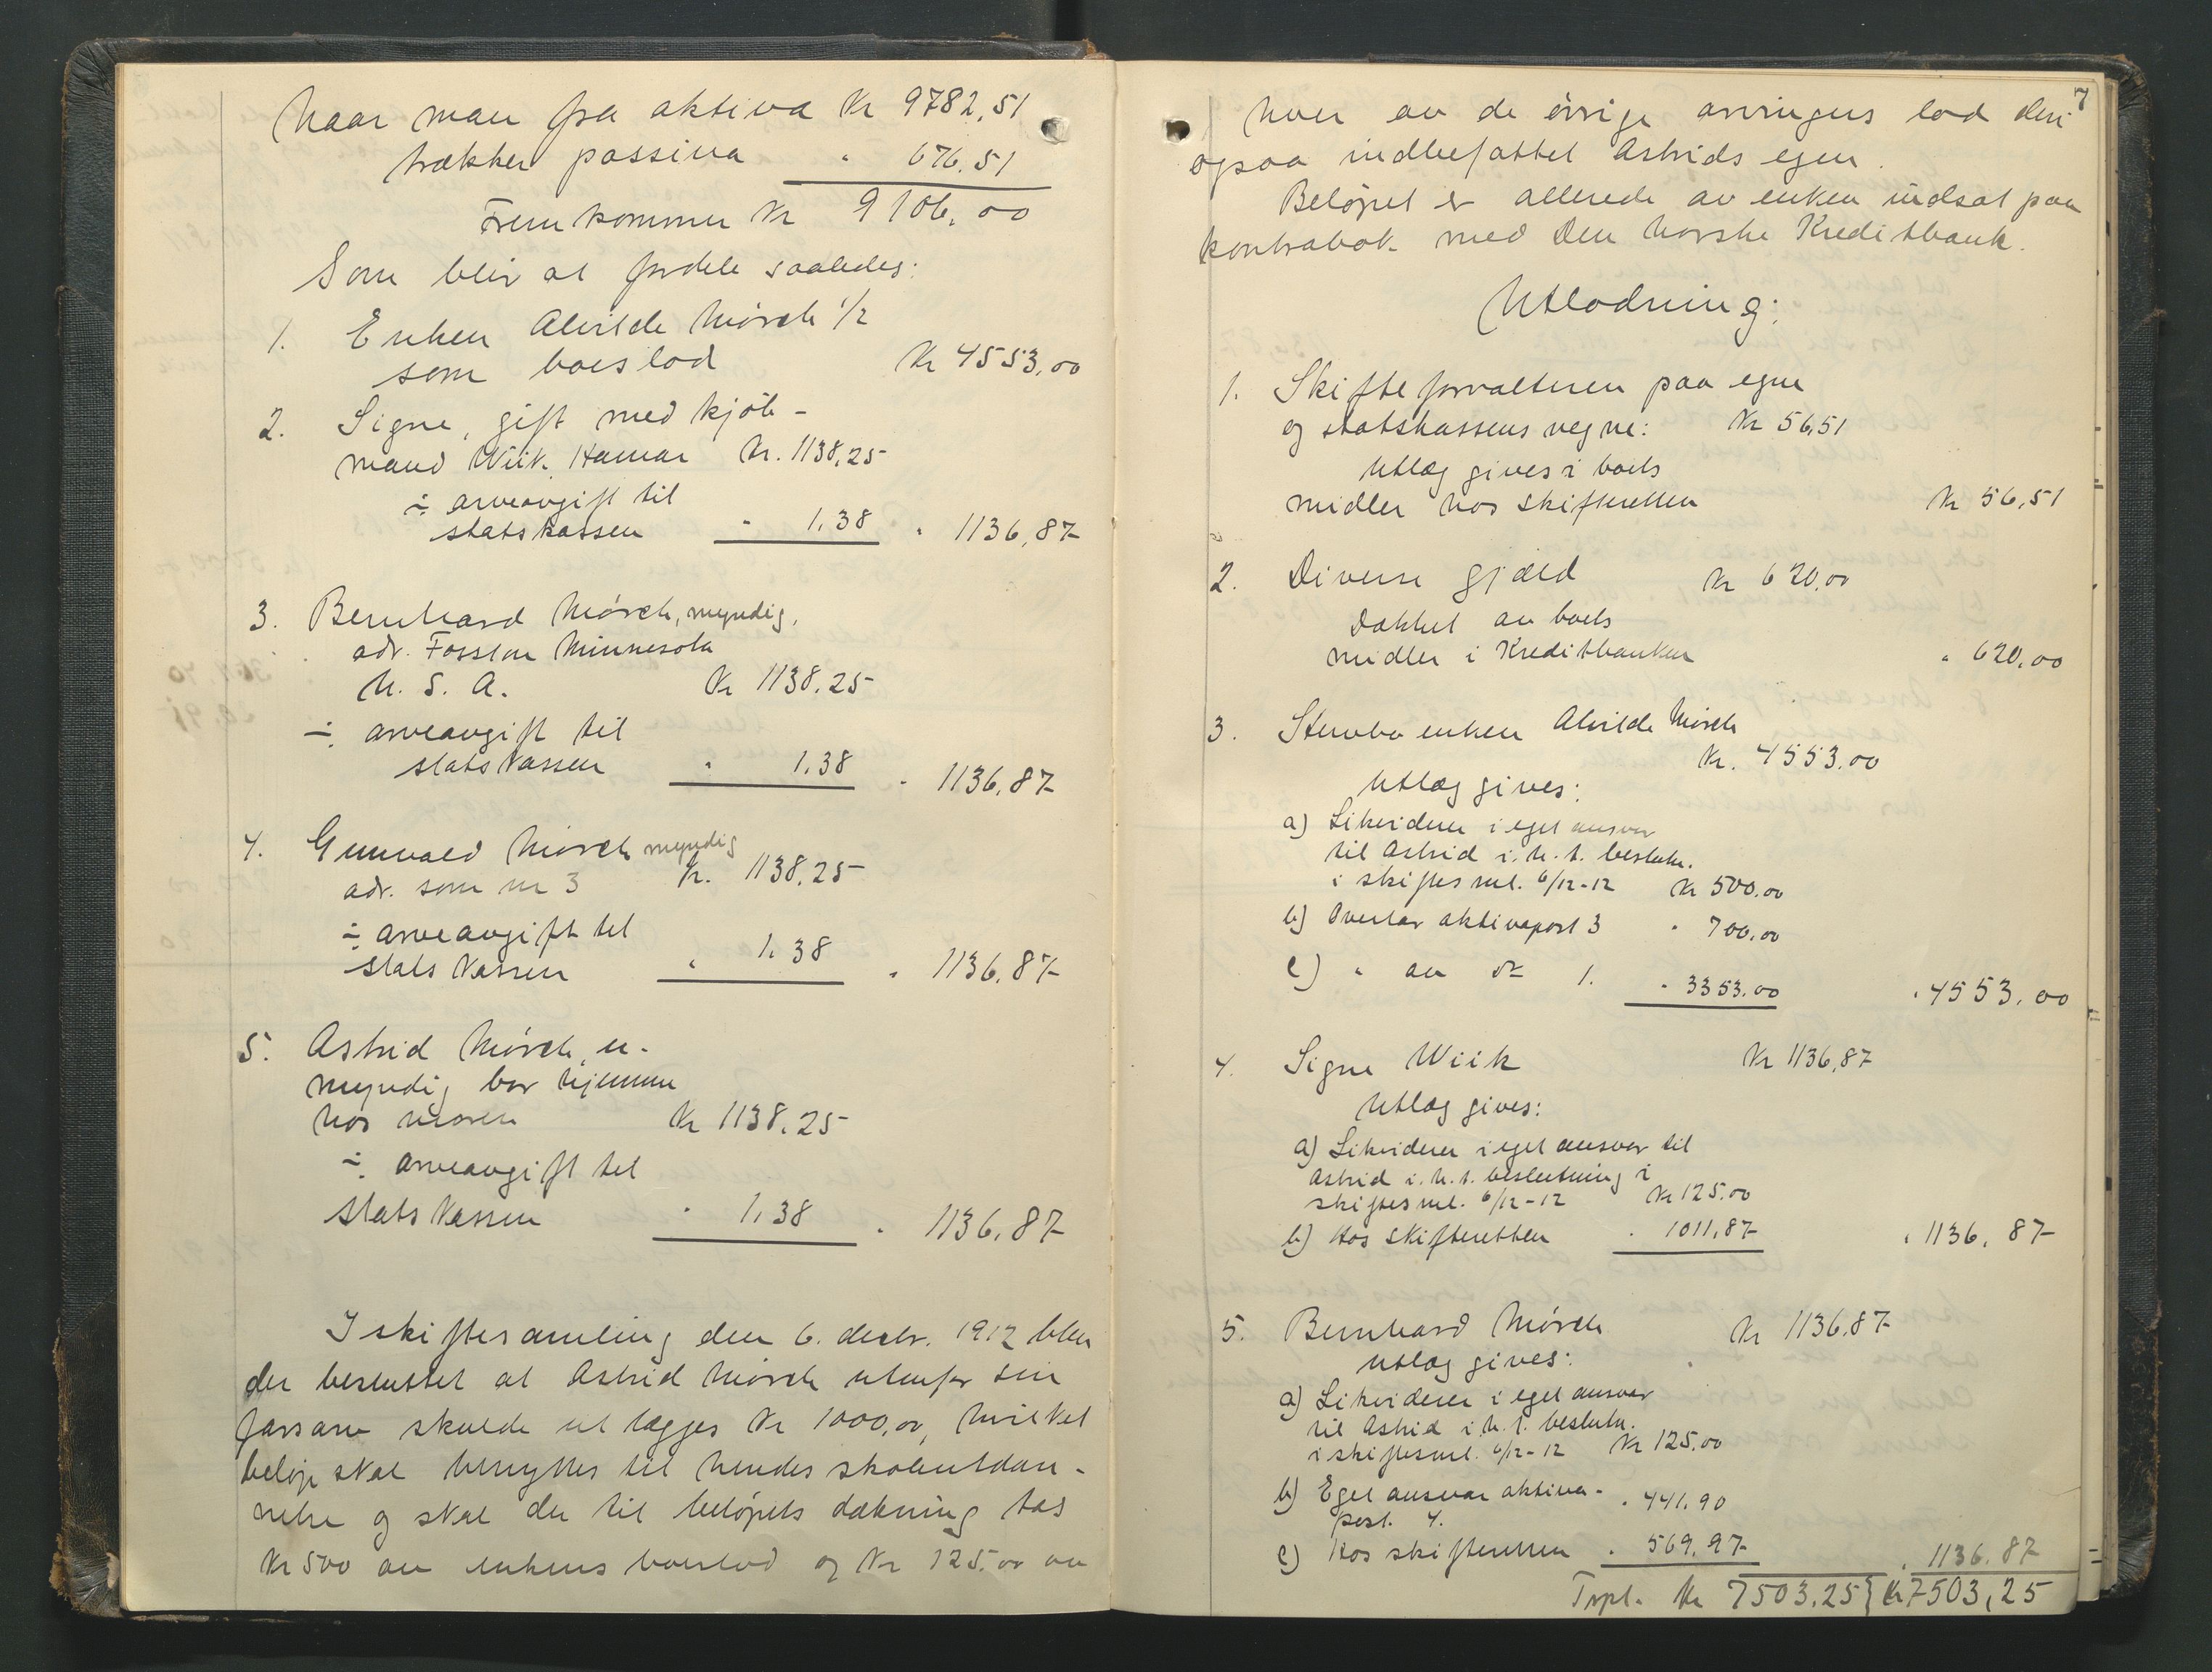 Naar man fra aktiva Kr 9782,51
trækker passiva " 676.51
Fremkommer Kr 9106,00
Som blir at fordele saaledes:
1. Enken Alvilde Mörch 1/2
som boeslod Kr 4553,00
2. Signe, gift med kjøb-
mand Wiik. Hamar Kr. 1138,25
÷ arveavgift til
statskassen " 1,38 " 1136,87
3. Bernhard Mörch, myndig,
adr. Fosston Minnesota
U. S. A. Kr 1138,25
÷ arveavgift til
statskassen " 1,38 " 1136,87
4. Gunvald Mörch myndig
adr. som nr 3 Kr. 1138,25
÷ arveavgift til
statskassen " 1,38 " 1136,87
5. Astrid Mörch, u-
myndig bor hjemme
hos moren Kr 1138,25
÷ arveavgift til
statskassen " 1,38 " 1136,87
I skiftesamling den 6. decbr. 1912 blev
der besluttet at Astrid Mörch utenfor sin
farsarv skulde utlægges Kr 1000,00, hvilket
beløp skal benyttes til hendes skoleutdan-
nelse og skal der til beløpets dækning tas
Kr 500 av enkens boeslod og Kr 125.00 av
7
hver av de øvrige arvingers lod deri
ogsaa indbefattet Astrids egen.
Beløpet er allerede av enken indsat paa
kontrabok med Den Norske Kreditbank.
Utlodning:
1. Skifteforvalteren paa egne
og statskassens vegne: Kr 56,51
Utlæg gives i boets
midler hos skifteretten Kr 56,51
2. Diverse gjæld Kr 620,00
Dækket av boets
midler i Kreditbanken " 620,00
3. Stervbo enken Alvilde Mörch
Kr. 4553.00
Utlæg gives:
a) Likviderer i eget ansvar
til Astrid i. h. t. beslutn.
i skiftesml. 6/12-12 Kr 500.00
b) Overtar aktivapost 3 " 700,00
c) " av do 1. " 3353.00 " 4553,00
4. Signe Wiik Kr 1136,87
Utlæg gives:
a) Likviderer i eget ansvar til
Astrid i. h. t. beslutning i
skiftesml. 6/12-12 Kr 125.00
b) Hos skifteretten " 1011,87 " 1136,87
5. Bernhard Mörch Kr 1136,87
Utlæg gives:
a) Likviderer i eget ansvar
til Astrid i. h. t. beslutn.
i skiftesml. 6/12-12 Kr 125.00
b) Eget ansvar aktiva- " 441.90
post. 4.
c) Hos skifteretten " 569.97 " 1136.87
Trpt. Kr 7503.25 } Kr 7503,25